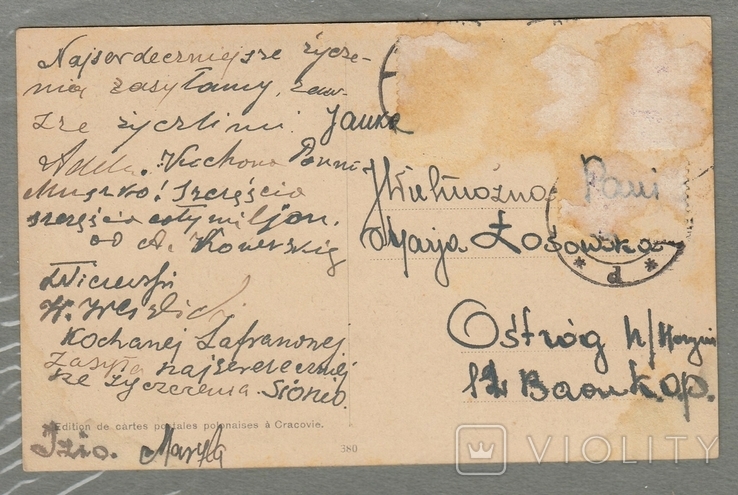 Najserdeczniejsze życze-
nia zasyłamy, zaw-
sze życzliwi. Janka
Adela. Kochana Panni
Muszko! Szczęścia
szczęścia cały miljon.
od A.
Kochanej Szafranowej
zasyła najserdeczniej
sze życzenia Sionio.
Izio. Maryla
Edition de cartes postales polonaises à Cracovie.
380
JWielmożna Pani
Marja Łosowska
Ostróg n/Horyn
12 Baon K.O.P.
* d *
VIOLITY